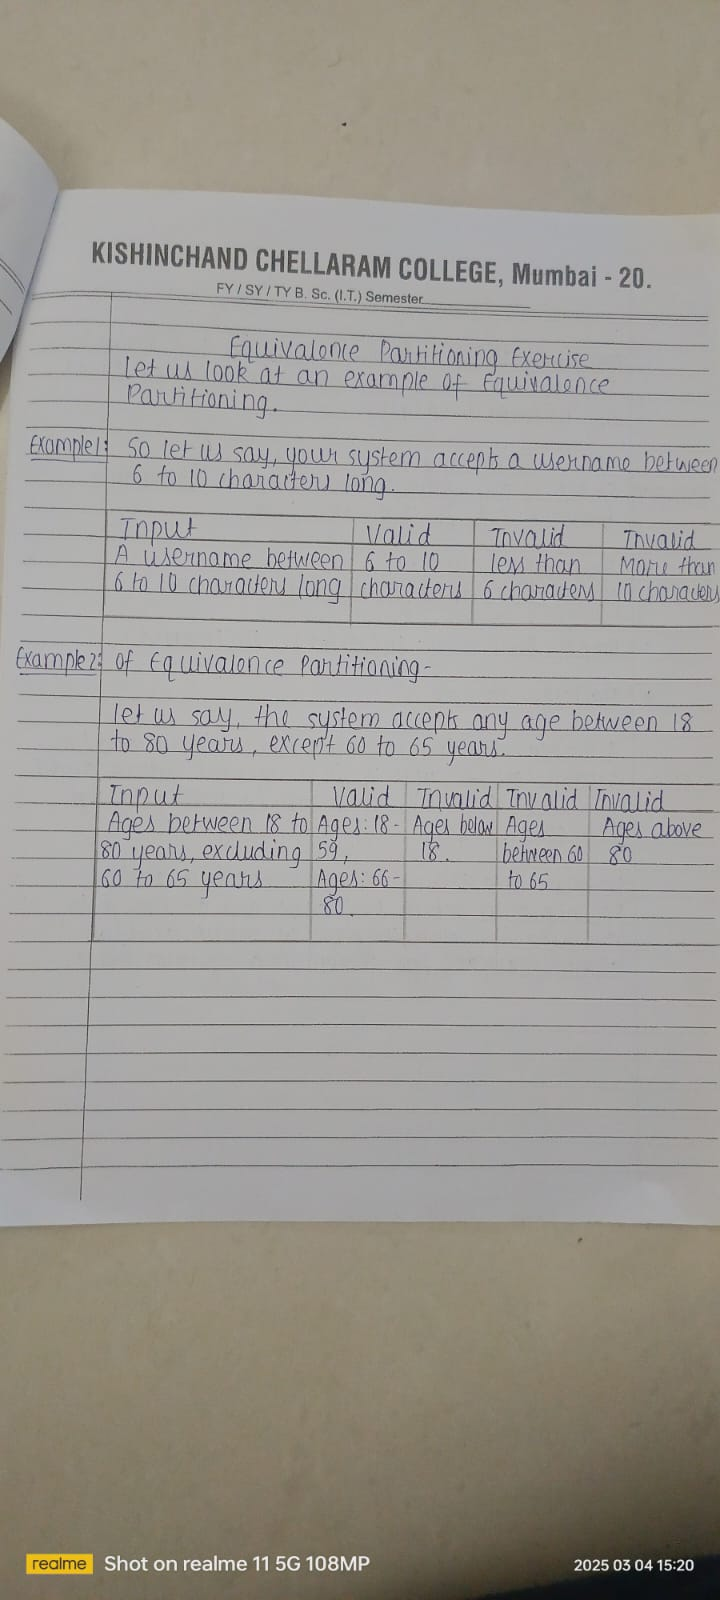 KISHINCHAND CHELLARAM COLLEGE, Mumbai - 20.
FY / SY / TY B. Sc. (I.T.) Semester
Equivalence Partitioning Exercise
Let us look at an example of Equivalence
Partitioning.
Example 1: So let us say, your system accepts a username between
6 to 10 characters long.
Input Valid Invalid Invalid
A username between 6 to 10 less than More than
6 to 10 characters long characters 6 characters 10 characters
Example 2: of Equivalence Partitioning -
let us say, the system accepts any age between 18
to 80 years, except 60 to 65 years.
Input Valid Invalid Invalid Invalid
Ages between 18 to Ages: 18- Ages below Ages Ages above
80 years, excluding 59, 18. between 60 80
60 to 65 years Ages: 66- to 65
80.
realme Shot on realme 11 5G 108MP 2025 03 04 15:20